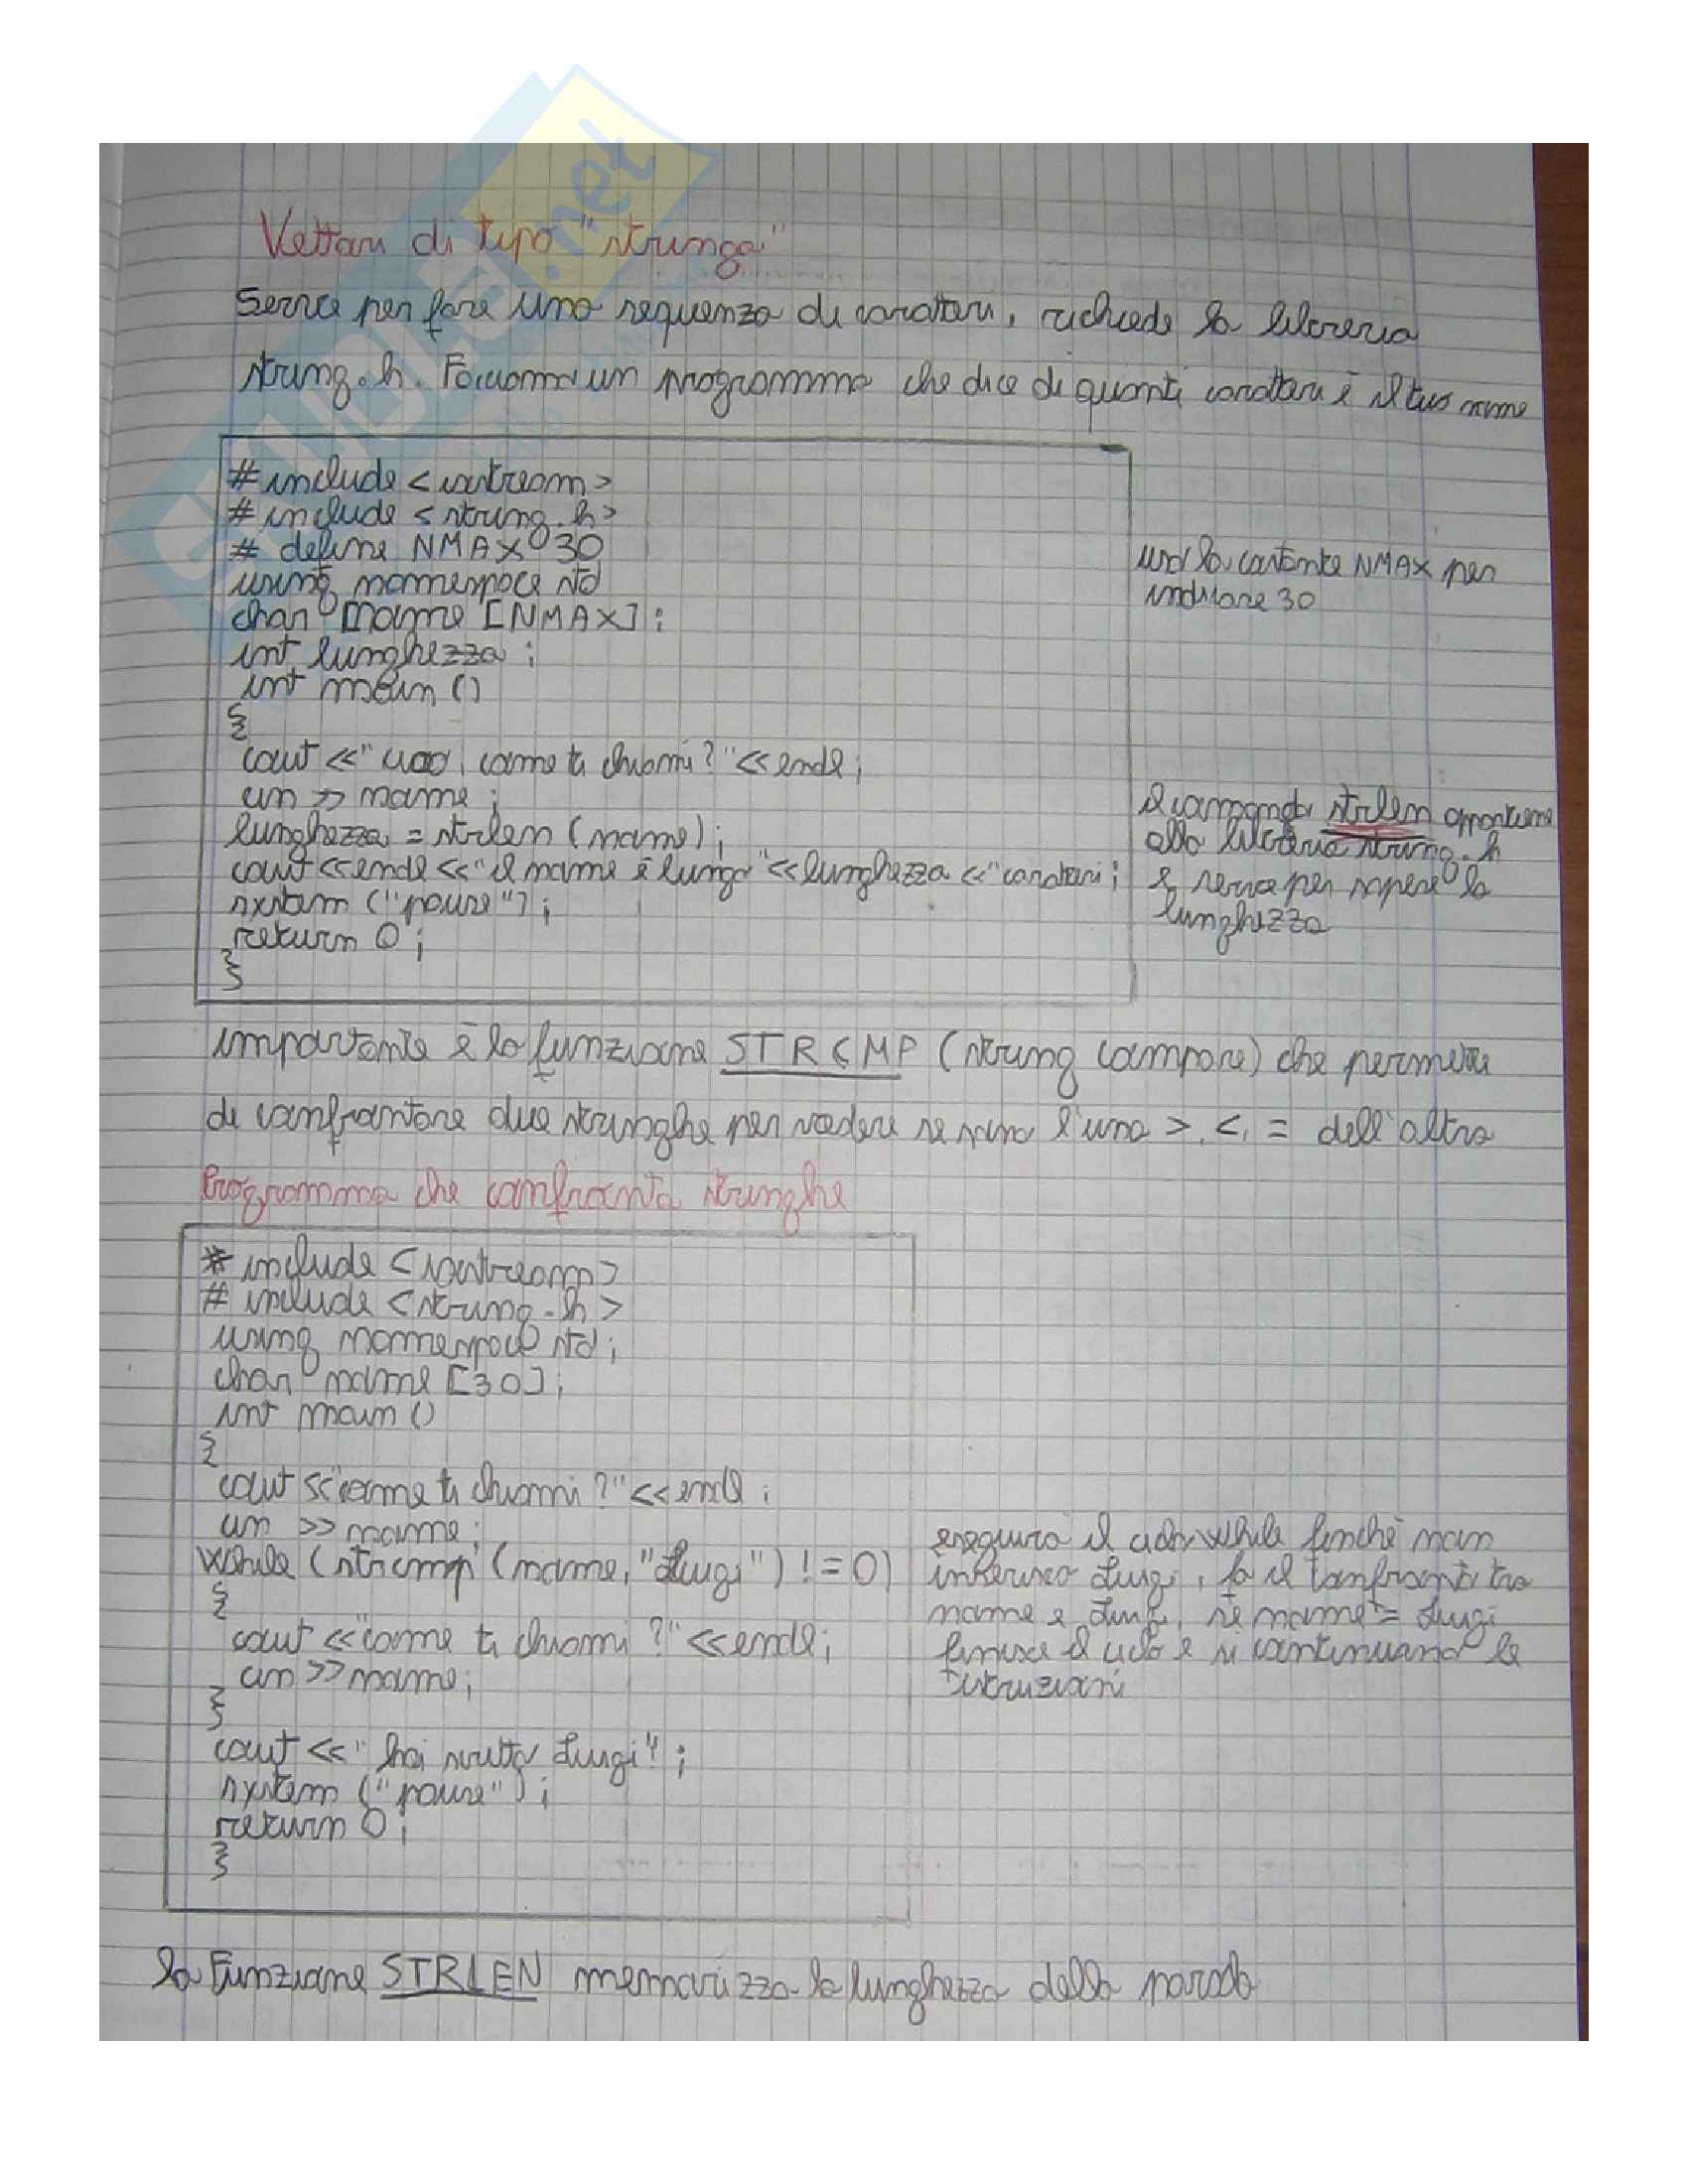 Vettori di tipo "stringa"
Serve per fare una sequenza di caratteri, richiede la libreria
string.h. Facciamo un programma che dice di quanti caratteri è il tuo nome
#include <iostream>
#include <string.h>
# define NMAX 30
using namespace std
char nome [NMAX];
int lunghezza ;
int main ()
{
cout <<" ciao, come ti chiami?"<<endl;
cin >> nome ;
lunghezza = strlen (nome);
cout <<endl<<"il nome è lungo"<<lunghezza <<"caratteri;
system ("pause");
return 0 ;
}
uso la costante NMAX per
indicare 30
il comando strlen appartiene
alla libreria string.h
e serve per sapere la
lunghezza
importante è la funzione STRCMP (string compare) che permette
di confrontare due stringhe per vedere se sono l'una >, <, = dell'altra
Programma che confronta stringhe
# include <iostream>
# include <string.h>
using namespace std;
char nome [30];
int main ()
{
cout <<"come ti chiami?"<<endl ;
cin >>nome;
while (strcmp (nome, "Luigi") !=0)
{
cout <<"come ti chiami?"<<endl;
cin >>nome;
}
cout <<" hai scritto Luigi" ;
system ("pause") ;
return 0 ;
}
eseguirà il ciclo while finchè non
inserisco Luigi, fa il confronto tra
nome e Luigi, se nome = Luigi
finisce il ciclo e si continuano le
istruzioni
la Funzione STRLEN memorizza la lunghezza della parola